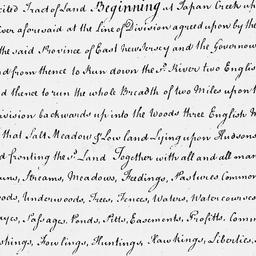 cited Tract of Land Beginning at Tapan Creek up
iver aforesaid at the Line of Division agreed upon by the
the said Province of East New Jersey and the Governou
nd from thence to Run down the sd. River two Englis
d thence to run the whole Breadth of two Miles upon t
ivision backwards up into the Woods three English M
that Salt Meadow & Low land Lying upon Hudsons
d fronting the sd. Land Together with all and all man
uns, Streams, Meadows, Feedings, Pastures Common
oods, Underwoods, Trees, Fences, Waters, Watercourses
ayes, Passages, Ponds, Pitts, Easements, Profitts, Comm
shings, Fowlings, Huntings, Hawkings, Liberties,